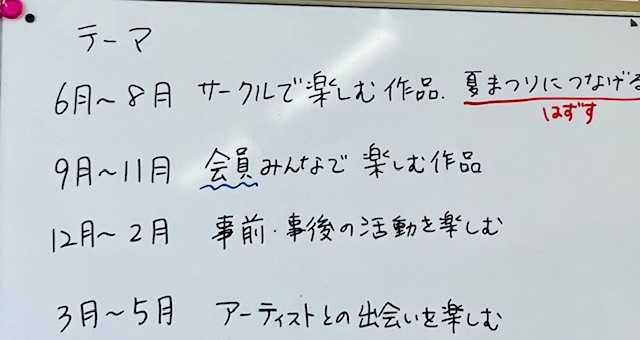 テーマ
6月〜8月 サークルで楽しむ作品. 夏まつりにつなげる
はずす
9月〜11月 会員みんなで楽しむ作品
12月〜2月 事前・事後の活動を楽しむ
3月〜5月 アーティストとの出会いを楽しむ